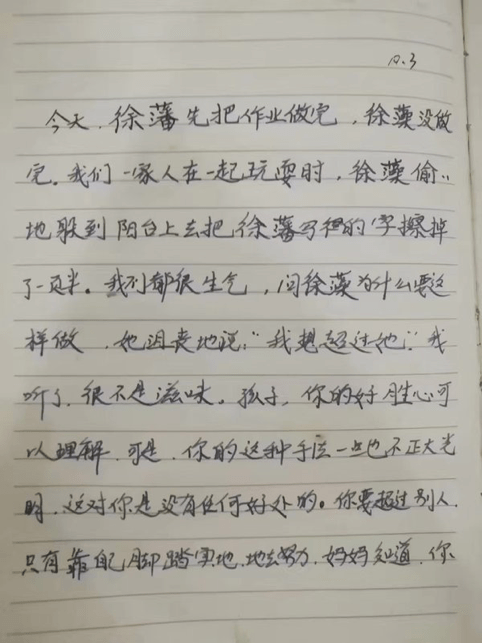 10.3
今天,徐藩先把作业做完,徐藻没做
完。我们一家人在一起玩耍时,徐藻偷偷
地躲到阳台上去把徐藩写得的字擦掉
了一页半。我们都很生气,问徐藻为什么要这
样做,她沮丧地说:“我想超过他。”我
听了,很不是滋味。孩子,你的好胜心可
以理解,可是,你的这种手法一点也不正大光
明,这对你是没有任何好处的。你要超过别人,
只有靠自己脚踏实地地去努力,妈妈知道,你